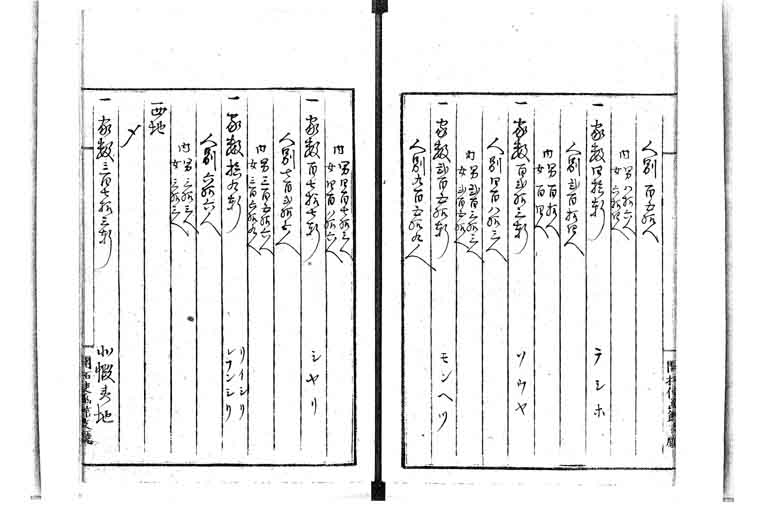 人別百五拾人
内 男八拾六人
女六拾四人
一 家数四拾軒 テシホ
人別弐百拾四人
内 男百拾人
女百四人
一 家数百弐拾三軒 ソウヤ
人別四百八拾三人
内 男弐百三拾三人
女弐百五拾人
一 家数弐百五拾軒 モンヘツ
人別九百五拾九人
内 男四百七拾三人
女四百八拾六人
一 家数百七拾七軒 シヤリ
人別七百弐拾七人
内 男三百五拾八人
女三百六拾九人
一 家数拾九軒 リイシリ
レフンシリ
人別六拾六人
内 男三拾三人
女三拾三人
西地
〆
一 家数三百七拾三軒 北蝦夷地